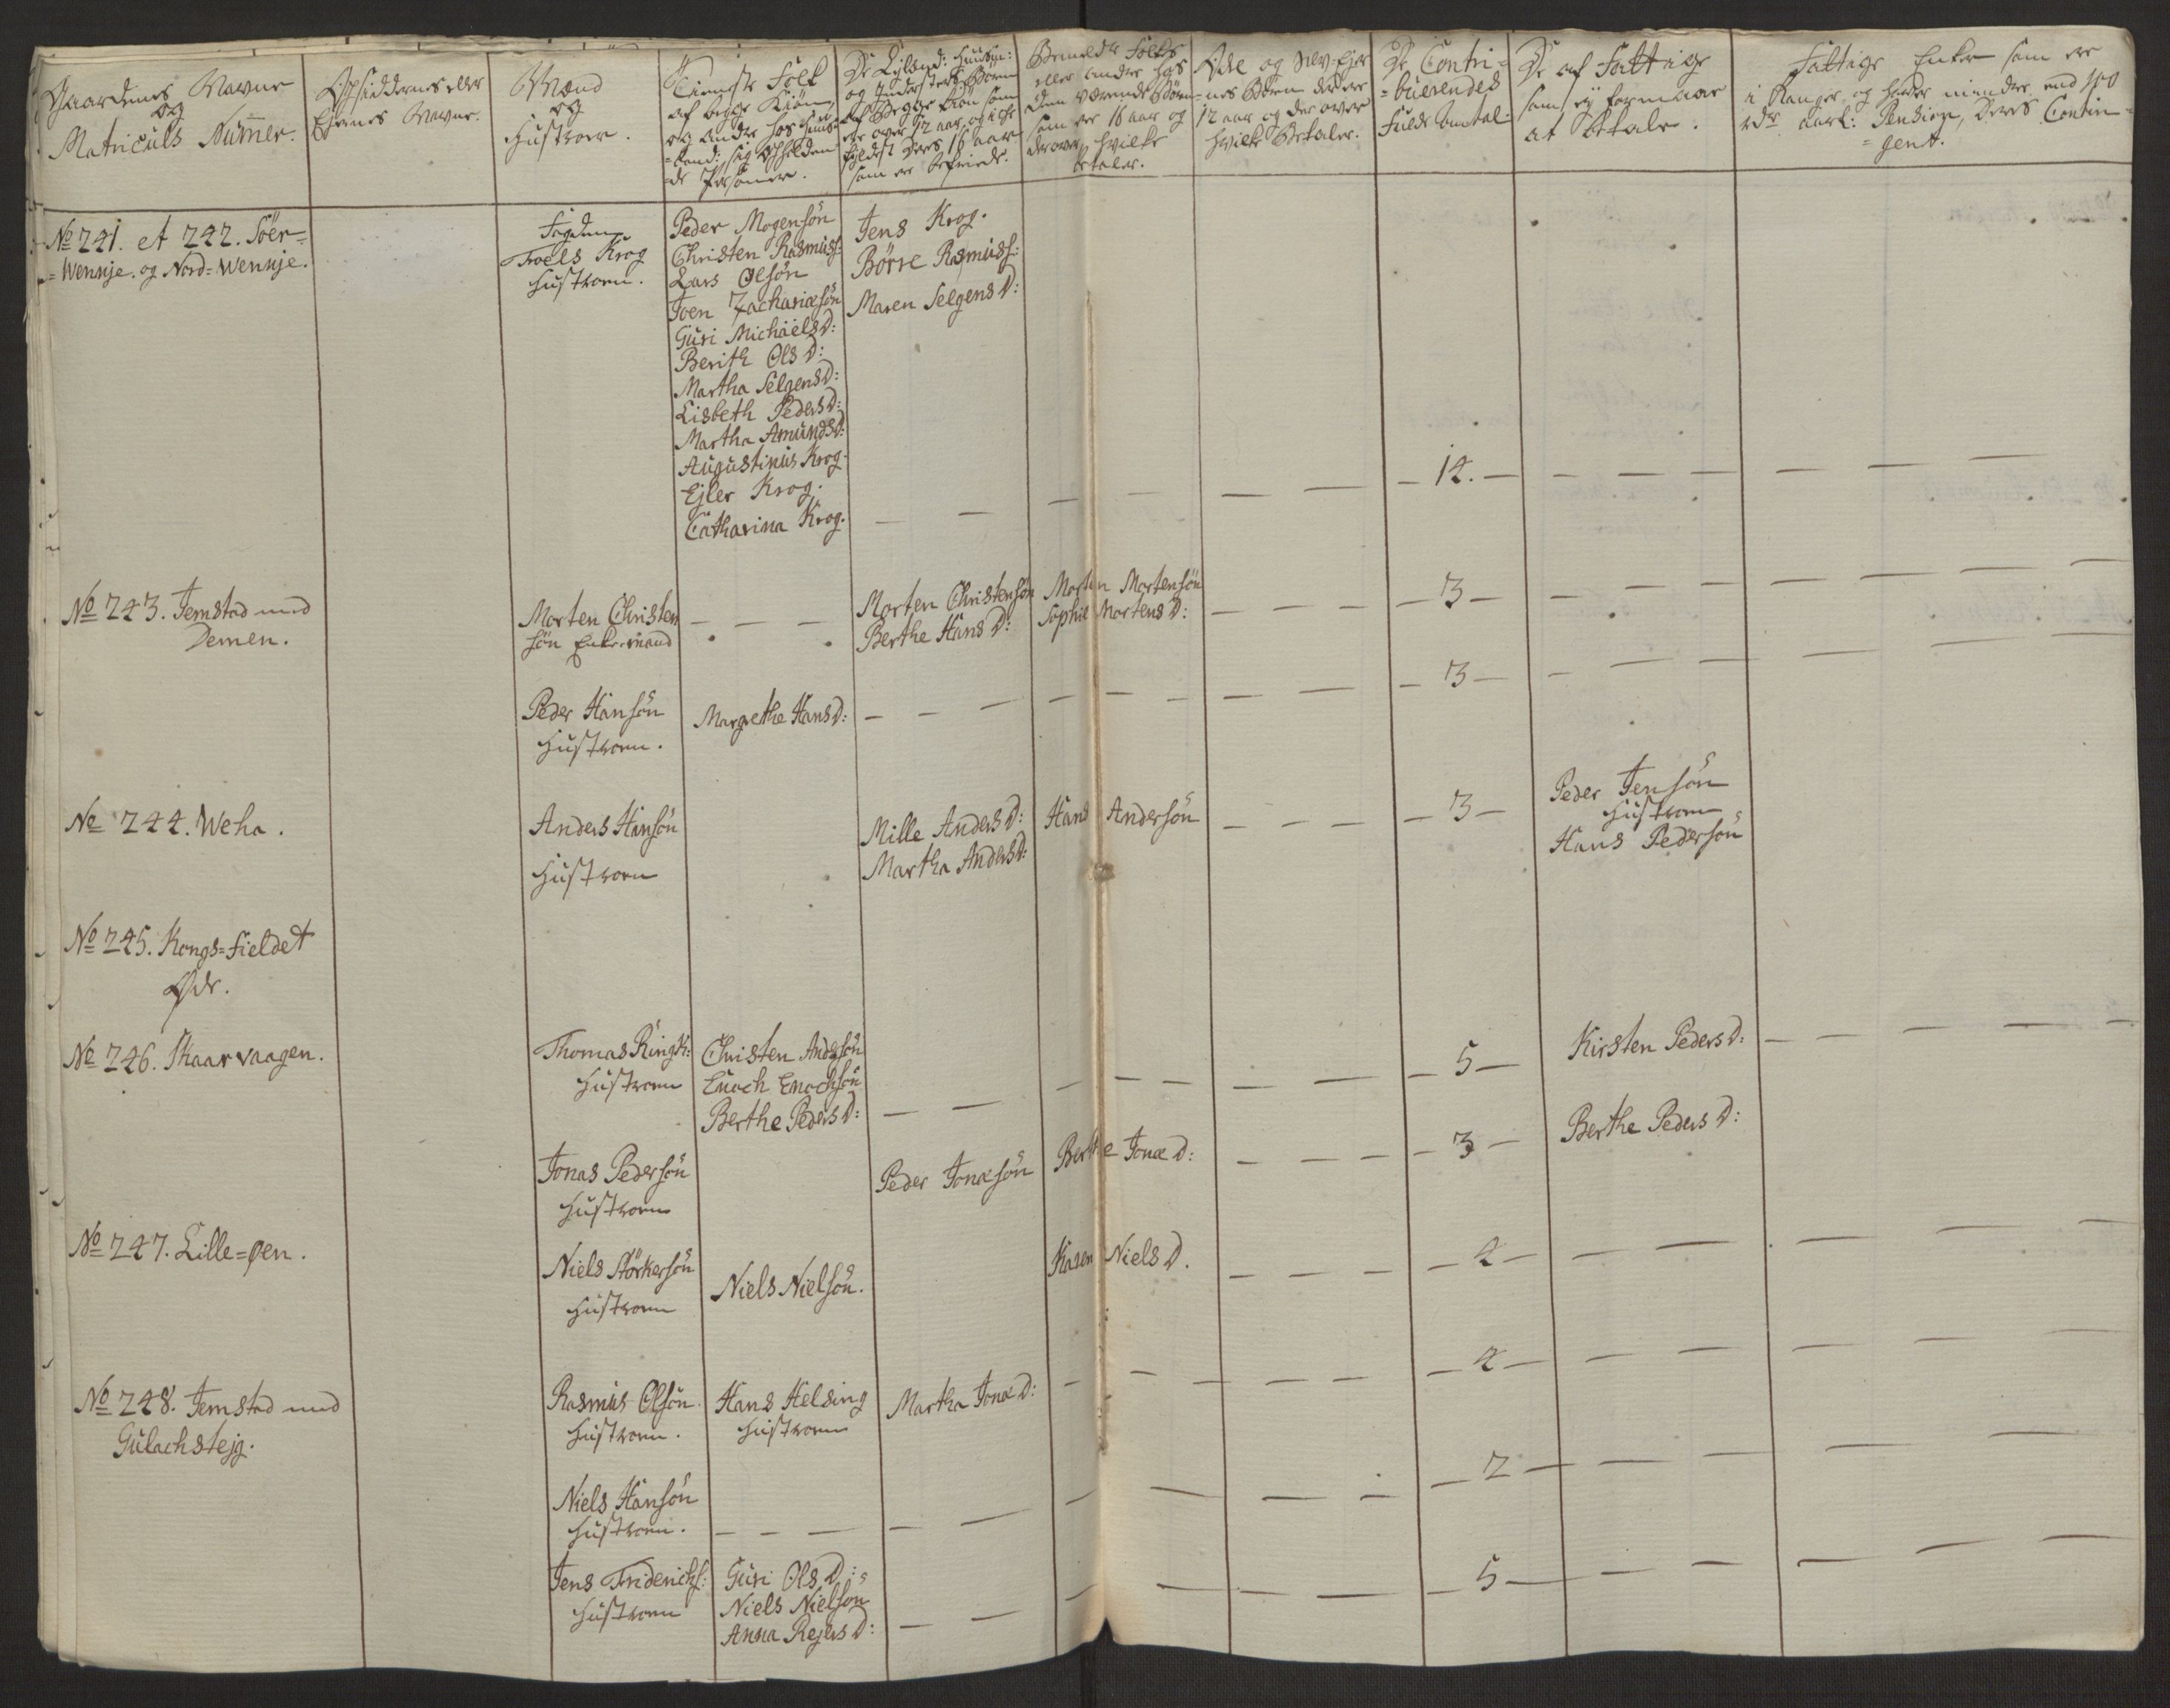 Gaardenes Navne
og
Matriculs Numer.
Opsiddernes eller
Ejernes Navne.
Mænd
og
Hustroer.
Tieneste Folk
af begge Kiön,
og andre hos Huus
=bond: sig opholden
=de Personer.
og Inderster Börn
af begge Kiön som
ere over 12 aar og icke
fyldest Deres 16 aar
som ere befriede.
Bemelte Folkes
eller andre hos
dem værende Börn
som ere 16 aar og
derover, hvilke
betaler.
=nes Börn der ere
12 aar og der over
hvilke Betaler.
De Contri=
=buerendes
Fulde Antal.
De af Fattige
som ey formaar
at betale.
Fattige Enker som ere
i Ranger og haver mindre end 100
rdr aarl: Pension, Deres Contin=
=gent.
No 241. et 242. Söer=
=Wennje. og Nord=Wennje.
Fogden
Troels Krog
Hustroen.
Peder Mogensön
Christen Rasmuss:
Lars Olsön
Joen Zachariæsön
Guri Michaels D:
Berith Ols D:
Martha Selgens D:
Lisbeth Peders D:
Martha Amunds D:
Augustinus Krog.
Ejler Krog.
Catharina Krog.
Jens Krog.
Börre Rasmuss:
Maren Selgens D:
— — — — — — 14. — — — — — — —
No 243. Jemstad med
Demen.
Morten Christen
sön Enkemand
— — —
Morten Christensön
Berthe Hans D:
Morten Mortensön
Sophie Mortens D:
— — — — 3 — — — — — — — —
Peder Hansön
Hustroen.
Margrethe Hans D:
— — — — — — — — — 3 — — — — — — —
No 244. Weha.
Anders Hansön
Hustroen
Mille Anders D:
Martha Anders D:
Hans Andersön
— — — — 3 —
Peder Jensön
Hustroen
Hans Pedersön
No 245. Kongs=Fieldet
Öde.
No 246. Skaarvaagen.
Thomas Ringk:
Hustroen
Christen Andersön
Enoch Enochsön
Berthe Peders D:
— — — — — — — — 5 —
Kirsten Peders D:
— — — — —
Jonas Pedersön
Hustroen
Peder Jonæsön
Berthe Jonæ D:
— — — — 3 —
Berthe Peders D:
No 247. Lille=øen.
Niels Störkersön
Hustroen
Niels Nielsön.
Karen Niels D.
— — — — 4 — — — — — — —
No 248. Jemstad med
Gulachstejg.
Rasmus Olsön.
Hustroen.
Hans Helsing
Hustroen
Martha Jonæ D:
— — — — — — 4 — — — — — —
Niels Hansön
Hustroen.
— — — — — — — — — — 2 — — — — —
Jens Friderichs:
Hustroen
Guri Ols D:
Niels Nielsön
Anna Rejers D:
— — — — — — — 5 — — — — — —